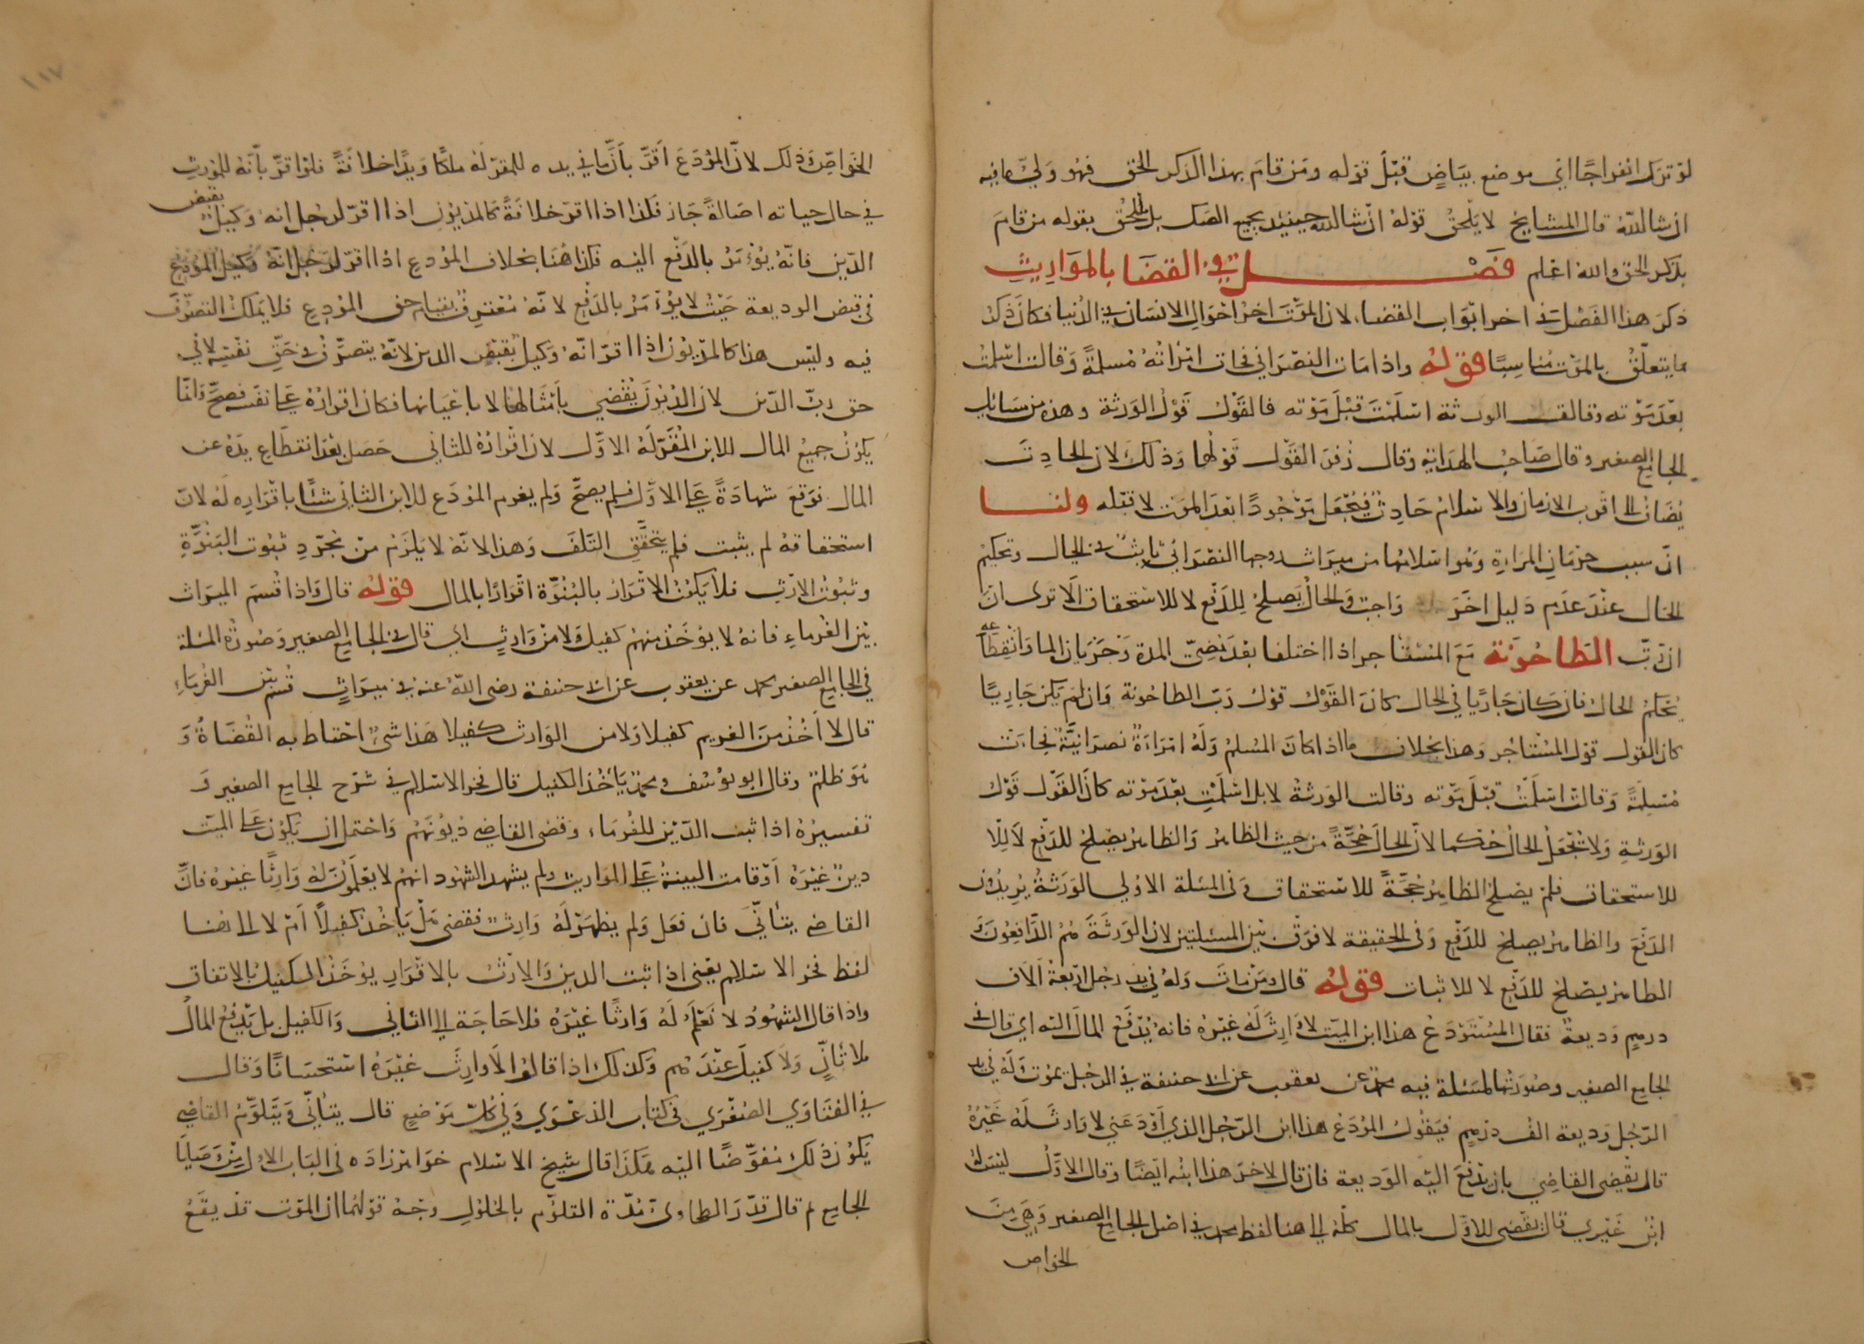 لو ترك انفراجًا اي موضع بياضٍ قبْلَ قوله ومَن قامَ بهذا الذكر الحق فهُو وَليّ ما فيه
ان شا اللهُ قال المشايخ لا يلحق قولهُ ان شا الله حينئذ بجميع الصّك بل يلحق بقوله من قامَ
بذكر الحق والله اعلم فصْل في القضَا بالموَاريثِ
ذكرَ هذا الفَصْل في اخر ابوَاب القضا لان الموْتَ اخر احوَالِ الانسان في الدُنيا فكانَ ذكرُ
ما يتعلّق بالموْت مُناسِبًا قولهُ واذا مَات النصْرَاني فجات امْراتهُ مُسلمةً وَقالت اسْلمْتُ
بعْدَ مَوْته وقالت الورثة اسْلَمْتَ قبْلَ مَوْته فالقَوْلُ قَوْلُ الوَرثة وهذه من مسَائل
الجامع الصغير وقال صَاحِبُ الهدَايةِ وقال زُفرَ القَوْل قَوْلهُا وَذلكَ لان الحادِثَ
يُضَافُ الى اقرب الازمان والاسْلامُ حَادِثٌ فيُجْعَل مَوْجُودًا بعْدَ الموت لا قبْله ولنا
انّ سببَ حرْمَانِ المرْاةِ وَهُوا سْلامُها من ميرَاث زوجها النصْرَاني ثابتٌ في الحال وتحكيمُ
الحَال عنْدَ عدَم دَليل اخَرَ وَاجبٌ وَالحالُ يَصلحُ للدَفْع لا للاسْتحقاق الا ترى انّ
ان رَبّ الطاحُونَة مَعَ المُسْتاجر اذا اختلفا بعْدَ مُضيّ المدة في جَرَيَان الماء وَانْقِطَاعه
يُحَكّمُ الحالُ فان كَان جَاريًا في الحال كانَ القَوْل قوْلُ رَبّ الطاحُونة وَان لمْ يَكن جَاريًا
كان القول قوْل المسْتاجر وهَذا بخلاف ما اذا كانَ المُسْلمُ وَلهُ امْرَاةٌ نصرَانيّةٌ فجاءَت
مُسْلِمَةً وَقالتْ اسْلَمْتُ قبْلَ مَوْته وقالت الوَرثةُ لا بل اسْلَمَتِ بعْدَ مَوْته كانَ القَوْل قَوْلُ
الوَرثةِ وَلا يُجْعَلُ الحالُ حُكما لانّ الحالَ حُجّةً من حيث الظاهر وَالظاهرُ يصْلحُ للدَفْع لا للا
للاسْتحقاق فلم يصْلح الظاهرُ حُجّةً للاسْتحقاق وَفي المسْئلة الاوْلى الوَرثةُ يُريدُون
الدَفْعَ والظاهرُ يصلح للدَفْع وَفي الحقيقة لا فرْقَ بيْنَ المسئلتين لان الوَرثَةَ هُم الدَّافعُون وَ
الظاهر يصْلح للدَفْع لا للاثبات قولهُ قال ومَنْ ماتَ وَلهُ في يد رَجل اربعَةُ الاف
درهمٍ وَديعةٌ فقال المُسْتَوْدَعُ هذا ابن الميّت لا وَارِثَ لهُ غيْرُهُ فانهُ يُدْفَعُ المالُ اليْه اي قال في
الجامع الصغير وصُورَتُها لمسئلة فيه محمدٌ عن يعقوب عن ابي حنيفة في الرجُل يمُوتُ وَلهُ في يد
الرّجُل وَديعة الفُ درْهمٍ فيقُولُ المُودَعُ هذا ابن الرّجُل الذي اوْدَعَني لا وَارثَ لهُ غيْرُهُ
قال يقْضي القاضي بان يدْفعَ اليْه الوَديعة فان قال لاخرَ هذا ابنُه ايْضًا وقال الاوّل ليْسَ لهُ
ابنٌ غيْري قال يقْضى للاوّل بالمال كلّه الى هنا لفظ محمد في اصْل الجامع الصغير وَهي منَ
الخواص
الخوَاصّ وَذلك لانّ المُوْدَعَ اَقرَّ باَنَّ ما في يده للمقرّ لهُ ملكًا وَيدًا خلافَةً فلوْا قرّ بانّهُ للمُورِث
في حال حياته اصَالةً جَاز فكذا اذا اقرّ خلافَةً كالمدْيُون اذا اقرّ لرجُل انهُ وَكيلٌ بقبض
الدَّيْن فانّهُ يُؤْمَرُ بالدَفْع اليْه فكذا هُنَا بخلاف المُودَع اذا اقرّ لرَجُلٍ انّهُ وَكيل المُودِع
في قبض الوديعة حَيْثُ لا يُؤْمَرُ بالدَفْع لانّهُ مُعْترفٌ بقيام حق المُودِع فلا يَملكُ التصرّف
فيه وليْسَ هذا كالمدْيُون اذا اقرّ انّهُ وَكيلٌ بقبْض الدين لانّهُ يتصرّف في حَقّ نفسِه لا في
حق ربّ الدّين لان الدُيُونَ تُقْضي باَمْثالها لا باعْيَانها فكان اقرارُهُ على نفسه فصحَّ وَانما
يكونُ جميعُ المال للابن المُقرّ لهُ الاوّل لان اقرارَهُ للثاني حَصَل بعْدَ انقطاع يدهُ عن
المال فوَقعَ شهادَةً على الاوّل فلم يصحّ وَلم يغرم المُودَع للابن الثاني شيْئًا باقرَارِه لهُ لانّ
اسْتحقاقهُ لم يثبت فلم يتحَقّق التّلفُ وَهذا لانّهُ لا يَلزَمُ منْ مُجرّدِ ثبُوت البُنُوَّةِ
وثبُوتُ الارْثِ فلا يَكُونُ الاقرَارُ بالبُنُوَّة اقرَارًا بالمال قولهُ قال وَاذا قُسمَ الميرَاث
بيْنَ الغُرماءِ فانهُ لا يؤخذ منهُم كفيل وَلا منْ وَارثٍ اي قال في الجامع الصغير وَصُورَةُ المسئلة
في الجامع الصغير محمد عن يعقوب عن ابي حنيفة رضي اللهُ عنهُ في ميرَاثٍ قُسمَ بيْن الغُرماءِ
قال لا اَخُذُ منَ الغريم كفيلا وَلا من الوَارث كفيلا هَذا شيْءٌ احْتاط به القُضَاةُ وَ
هُوَ ظلمٌ وقال ابو يوْسُف ومحمّد يَاْخُذ الكفيل قال فخر الاسْلام في شرْح الجامع الصغير وَ
تفسيرُهُ اذا ثبت الدّيْن للغُرمَاء وقضى القاضي دُيُونَهُمْ وَاحْتمل ان يَكُون على الميّت
دينٌ غيْرُهُ اَوْ قامت البينةُ على المواريث ولم يشهد الشهُود انهُم لا يعْلَمُونَ لهُ وَارِثًا غيرهُ فانّ
القاضي يتاَنّى فان فعَل وَلم يظهَرْ لهُ وَارِثٌ فقضى هَلْ يَاخُذ كفيلاً اَمْ لا الى هُنا
لفظ فخر الاسْلام يعْني اذا ثبت الدين وَالارْثُ بالاقرَار يوْخَذ الكفيلُ بالاتفاق
واذا قال الشهُودُ لا نَعْلَمُ لهُ وَارِثًا غيْرَهُ فلا حَاجَة الى التاَني وَالكفيل بل يُدْفعُ المالُ
بلا تاَنٍّ وَلا كفيلَ عنْدَهُم وَكذلك اذا قالُوا لا وارِثَ غيْرَهُ اسْتحسَانًا وَقال
في الفتاوَي الصُغْرَي في كتاب الدَعْوَي وَفي كلّ مَوْضعٍ قال يتاَنّى وَيتَلوّمُ القاضي
يَكُونُ ذلك مُفوّضًا اليْه هَكذا قال شيخ الاسْلام خوَاهَرْ زادَه في البَاب الاوّل منْ وَصَايَا
الجامع ثم قال قدّرَ الطحاوى مُدّة التلوّم بالحَوْل وجْهُ قوْلهُمَا ان الموْت قد يقَعُ